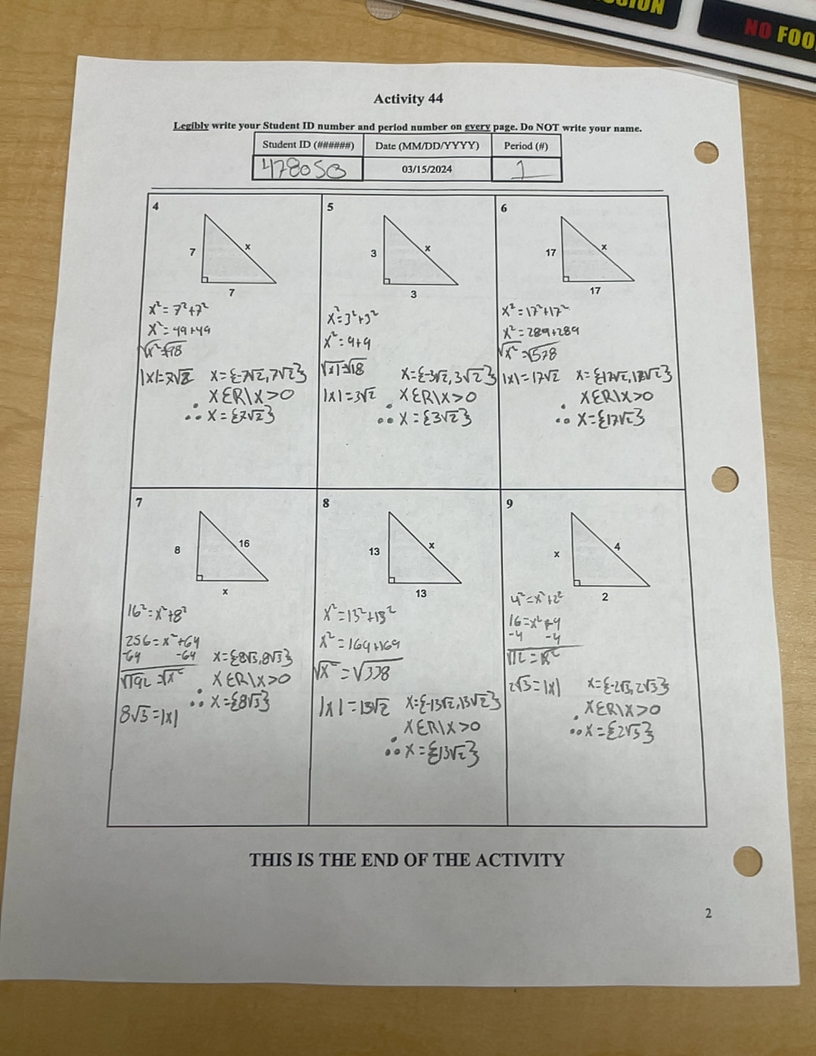 NO FOO
Activity 44
Legibly write your Student ID number and period number on every page. Do NOT write your name.
Student ID (######) Date (MM/DD/YYYY) Period (#)
478050 03/15/2024 1
4
7
x
7
x² = 7²+7²
x² = 49+49
√x² = √98
|x| = 7√2 x = {-7√2, 7√2}
x∈R|x>0
∴ x = {7√2}
5
3
x
3
x² = 3²+3²
x² = 9+9
√|x| = √18
|x| = 3√2 x = {-3√2, 3√2}
x∈R|x>0
∴ x = {3√2}
6
17
x
17
x² = 17²+17²
x² = 289+289
√x² = √578
|x| = 17√2 x = {17√2, 17√2}
x∈R|x>0
∴ x = {17√2}
7
8
16
x
16² = x²+8²
256 = x²+64
-64 -64
√192 = √x²
8√3 = |x|
x = {8√3, 8√3}
x∈R|x>0
∴ x = {8√3}
8
13
x
13
x² = 13²+13²
x² = 169+169
√x² = √338
|x| = 13√2 x = {-13√2, 13√2}
x∈R|x>0
∴ x = {13√2}
9
x
4
2
4² = x²+2²
16 = x²+4
-4 -4
√12 = √x²
2√3 = |x| x = {-2√3, 2√3}
x∈R|x>0
∴ x = {2√3}
THIS IS THE END OF THE ACTIVITY
2